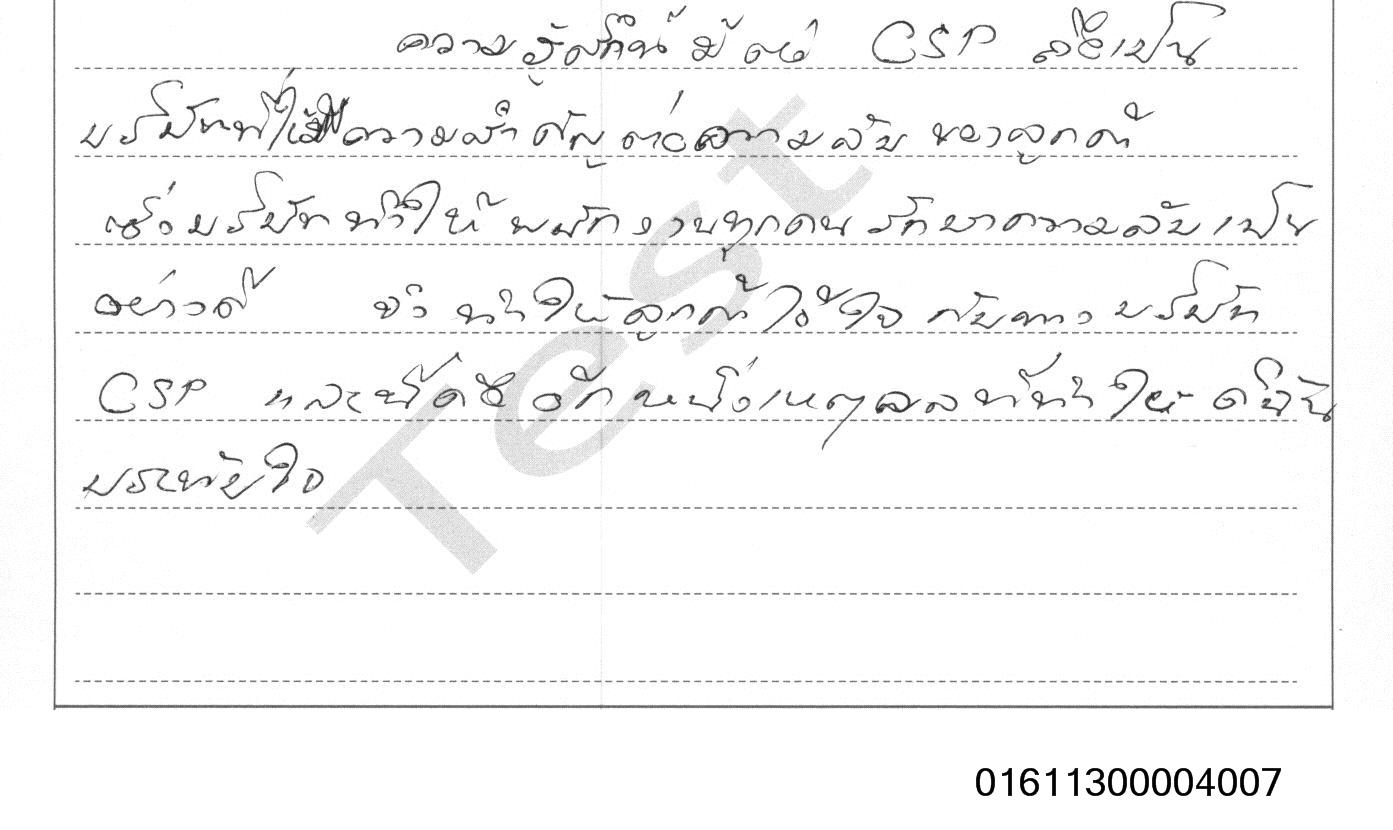 ความรู้สึกที่มีต่อ CSP คือเป็น
บริษัทที่ให้ความสำคัญต่อความลับของลูกค้า
ซึ่งบริษัททำให้พนักงานทุกคนรักษาความลับเป็น
อย่างดี จึงทำให้ลูกค้าไว้ใจกับทางบริษัท
CSP และนี่คืออีกหนึ่งเหตุผลที่ทำให้ดิฉัน
ประทับใจ
Test
01611300004007